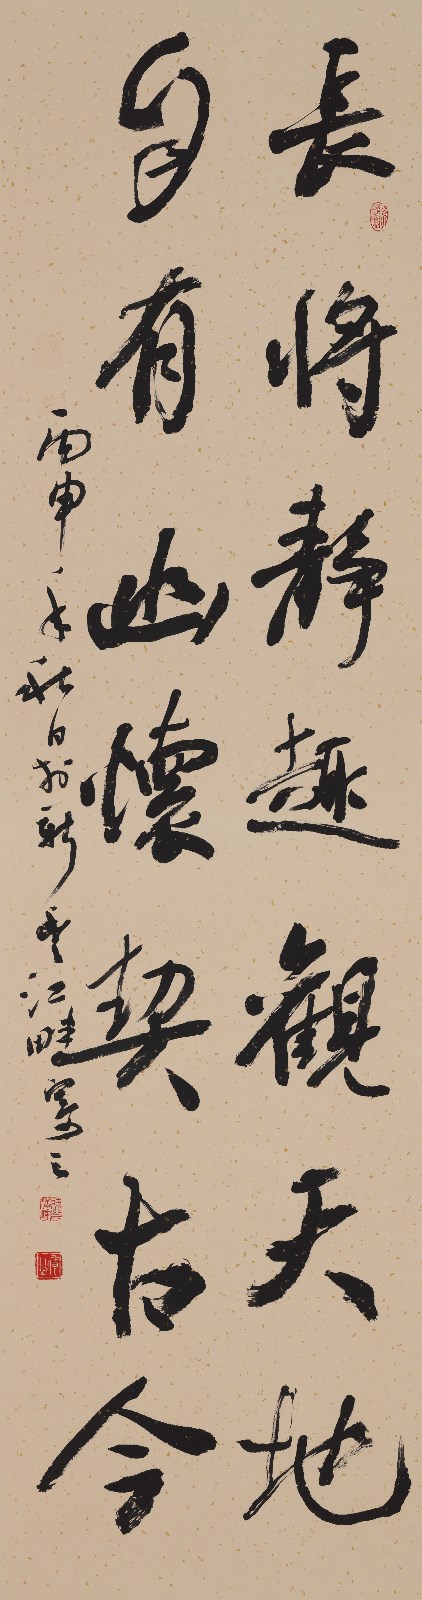 長將靜趣觀天地
自有幽懷契古今
丙申年秋日於新安江畔寫之